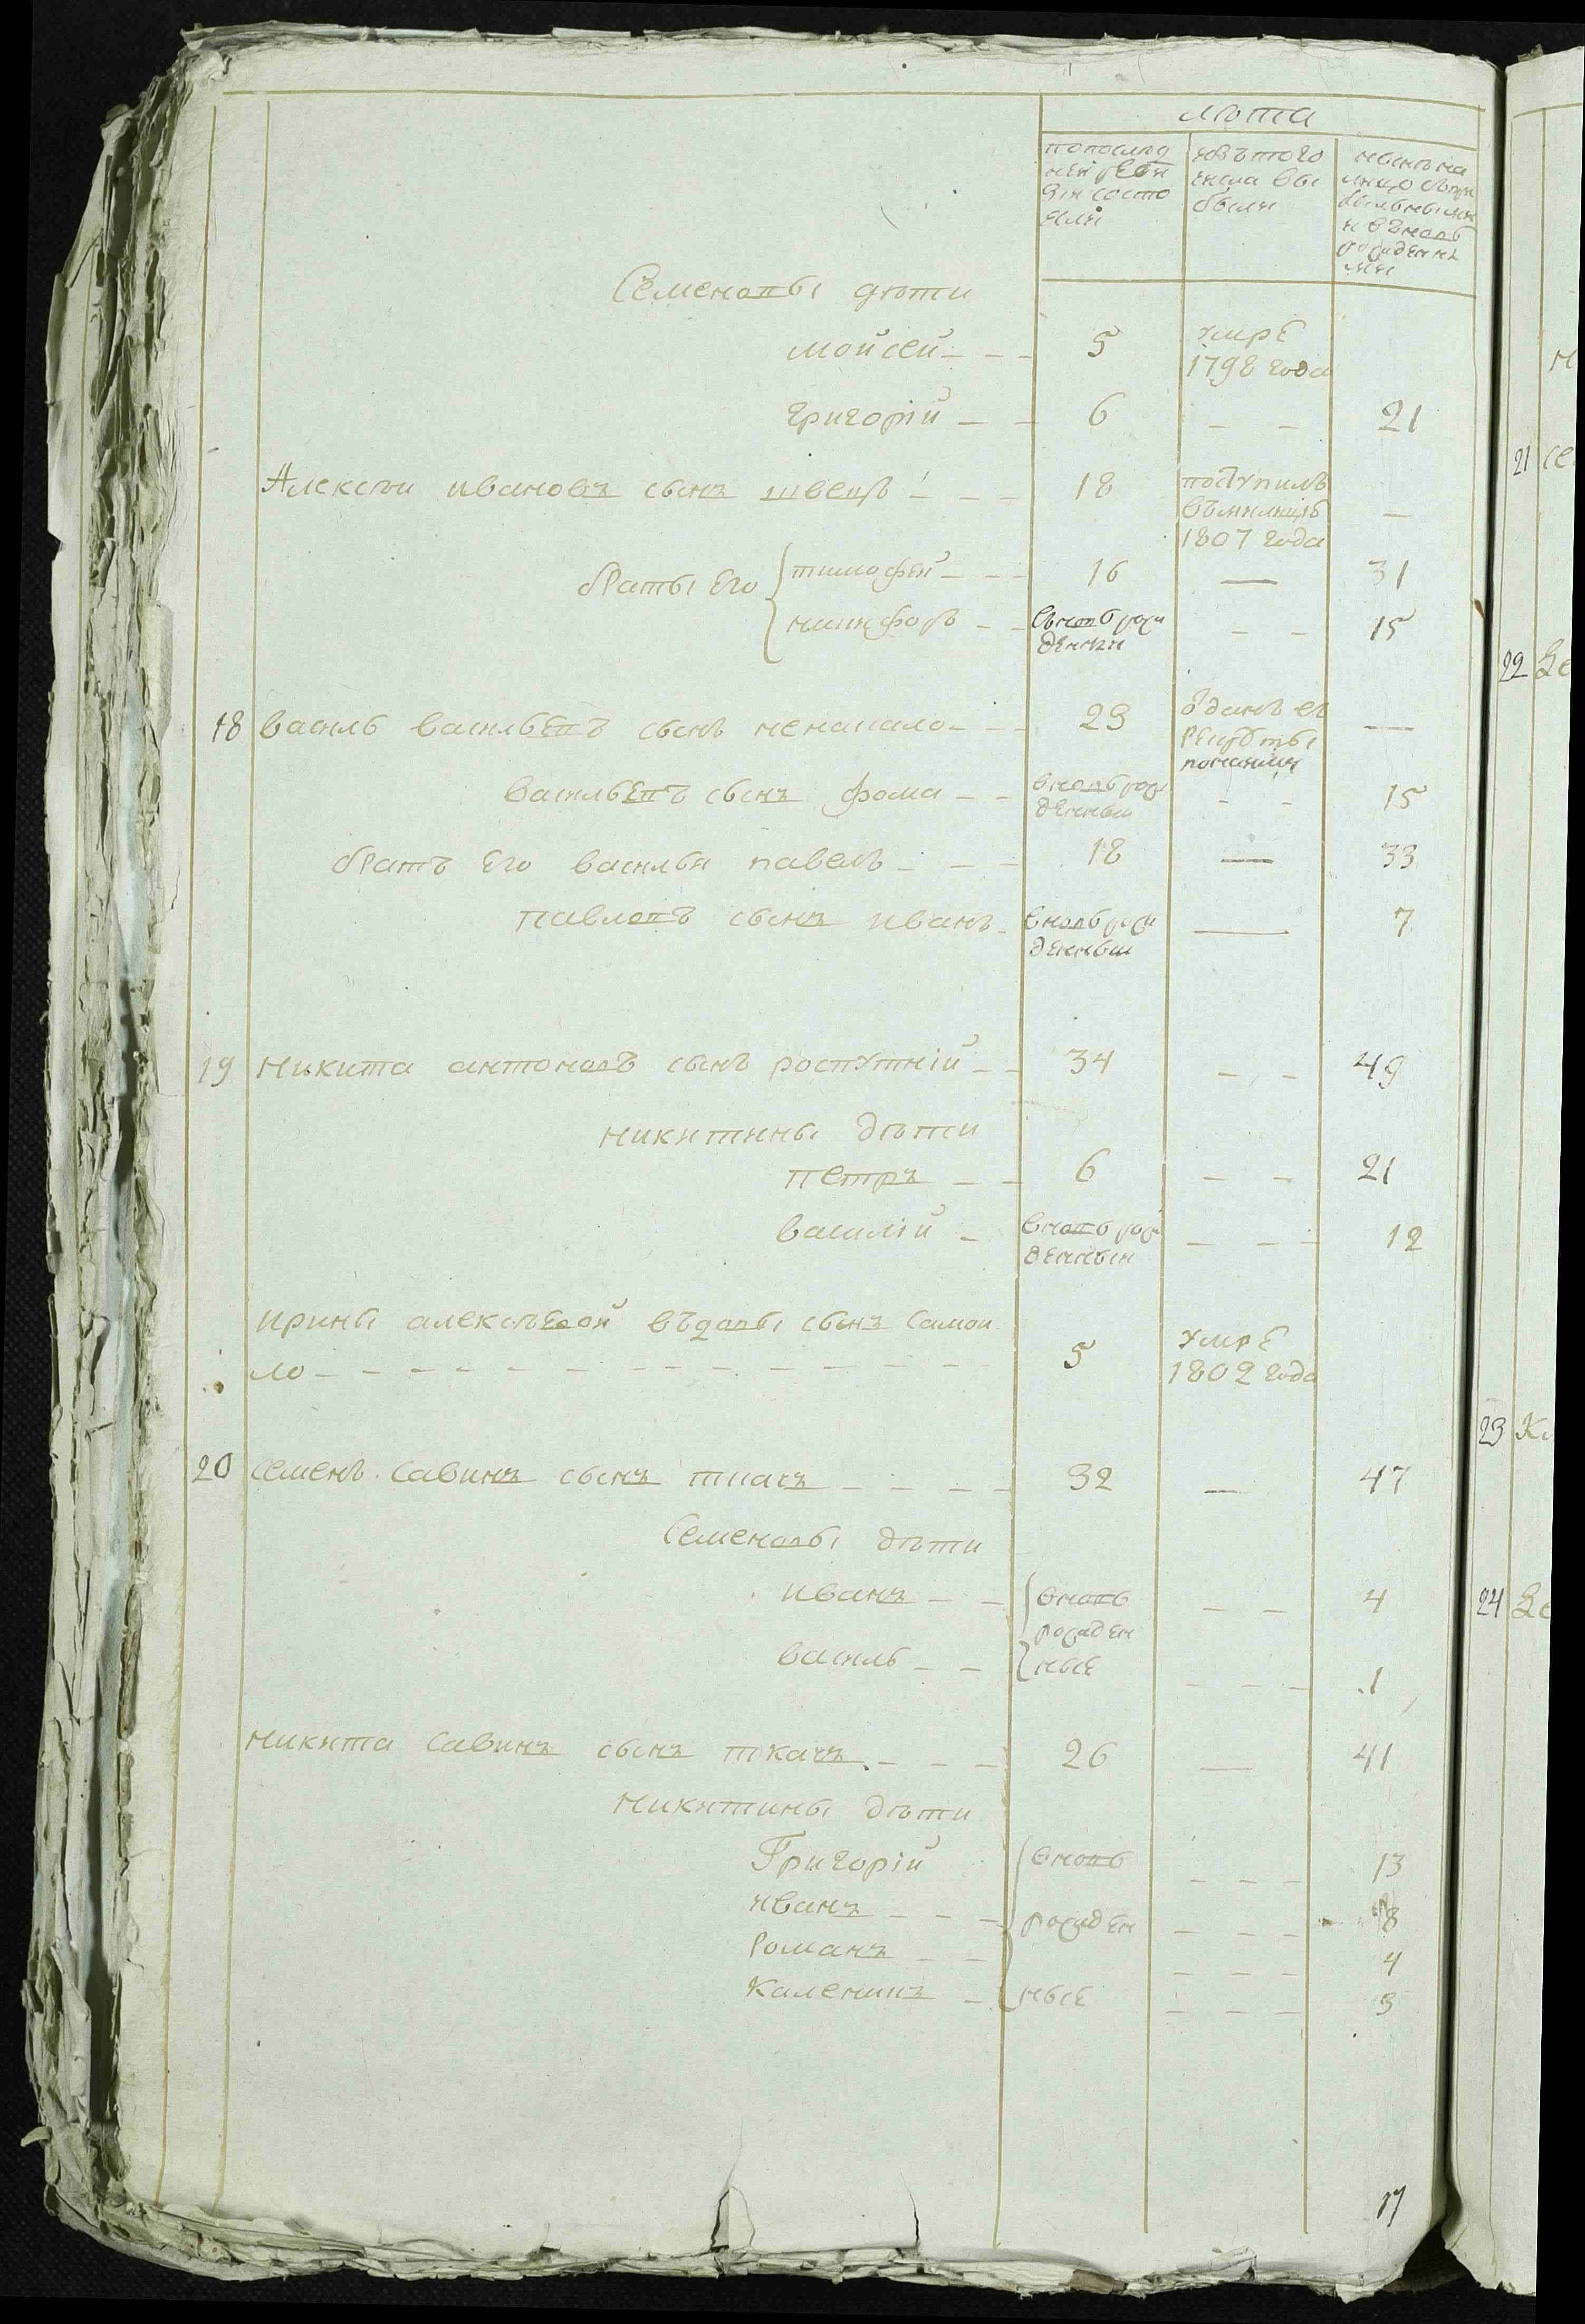 лѣта
попослѣд
ней реви
зіи состо
яли
изътого
числа вы
были
нынѣ на
лицо съпри
былыми
и въновь
рожденны
ми
Семеновы дѣти
мойсей 5 умре
1798 года
григорій 6 21
Алексѣи ивановъ сынъ швецъ 18 поступилъ
въмилицію
1807 года
браты его тимофей 16 31
никифоръ вьновь рож
денни 15
18 василь васильевъ сынъ 29 одданъ въ
рекруты
васильевъ сынъ фома вновь рож
денный 15
братъ его василья павелъ 18 33
павловъ сынъ иванъ вновь рож
денный 7
19 никита антоновъ сынъ роспутній 34 49
никитины дѣти
петръ 6 21
василій вновь рож
денный 12
ирины алексѣевой въдовы сынъ самой
ло 5 умре
1802 года
20 семенъ савинъ сынъ ткачъ 32 47
Семеновы дѣти
иванъ вновь 4
рожден
василь ные 1
никита савинъ сынъ ткачъ 26 41
никитины дѣти
Григорій вновь 13
иванъ рожден 8
романъ 4
каленикъ ные 3
17
21 се
22
23 К
24